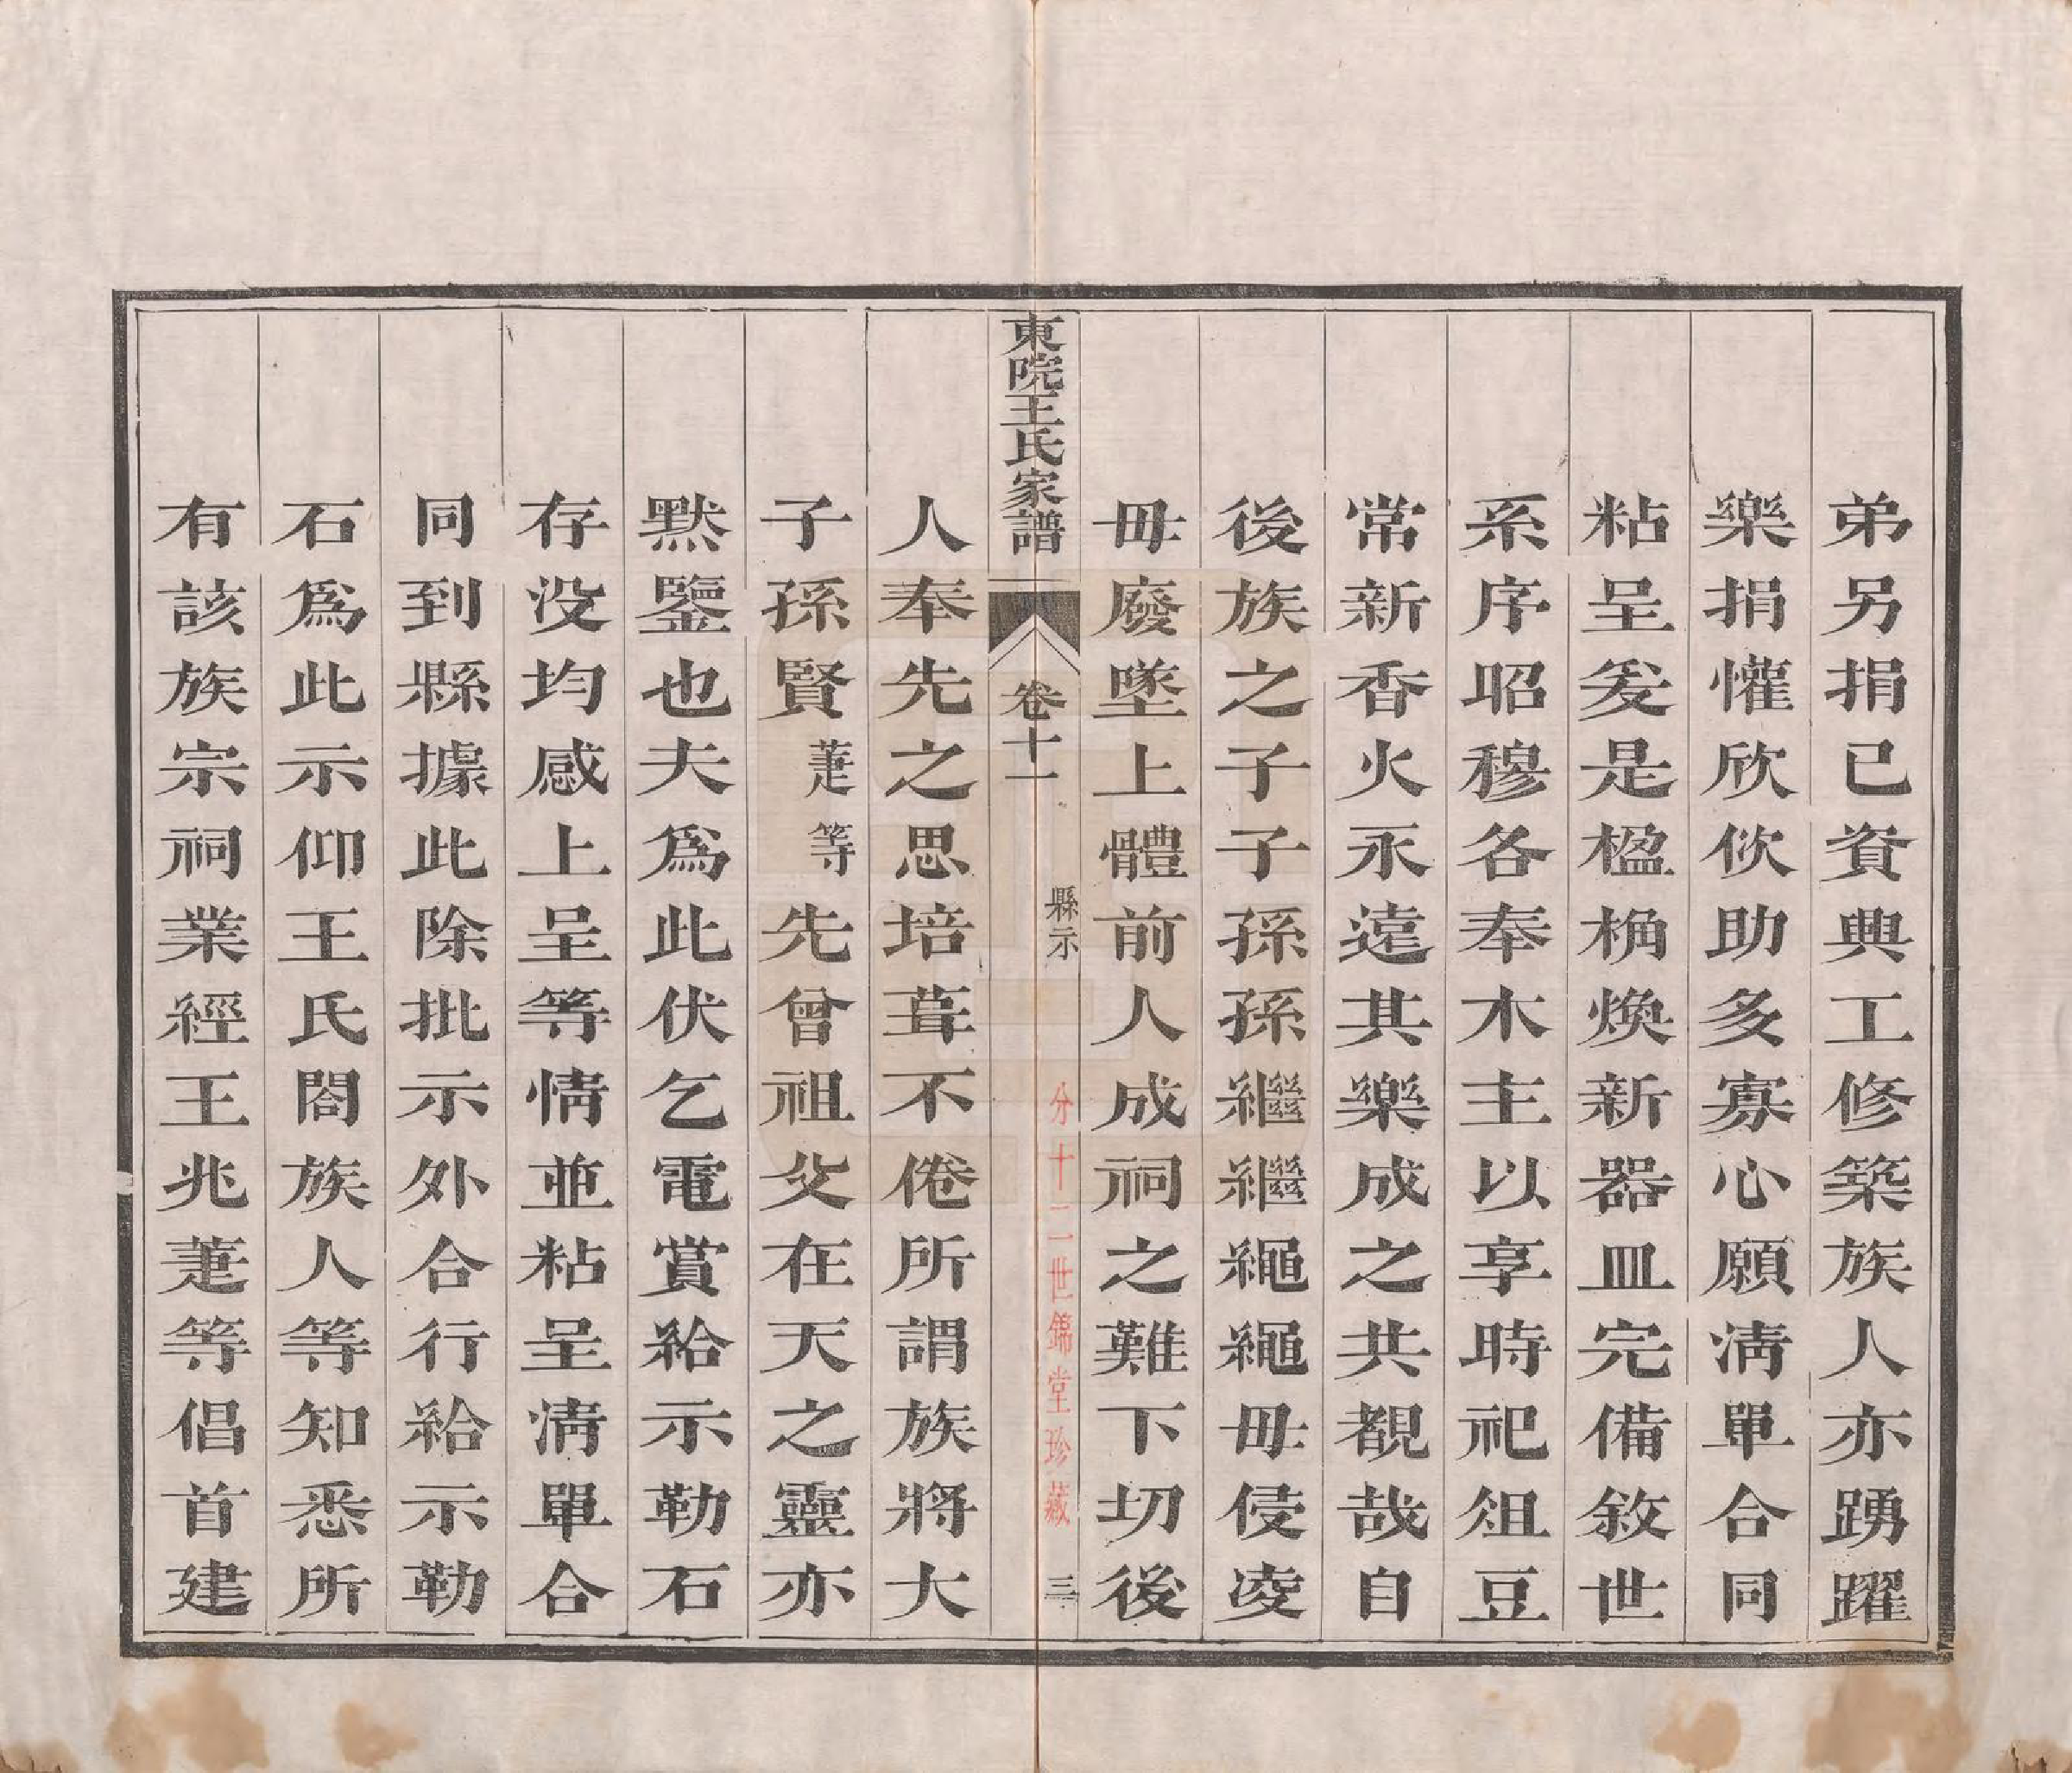 弟另捐已資興工修築族人亦踴躍
樂捐懽欣佽助多寡心願清單合同
粘呈爰是楹桷煥新器皿完備敘世
系序昭穆各奉木主以享時祀俎豆
常新香火永遠其樂成之共覩哉自
後族之子子孫孫繼繼繩繩毋侵凌
毋廢墜上體前人成祠之難下切後
東院王氏家譜
卷十一
縣示
三
分十二世錦堂珍藏
人奉先之思培葺不倦所謂族將大
子孫賢萐等先曾祖父在天之靈亦
黙鑒也夫為此伏乞電賞給示勒石
存没均感上呈等情並粘呈清單合
同到縣據此除批示外合行給示勒
石為此示仰王氏閤族人等知悉所
有該族宗祠業經王兆萐等倡首建